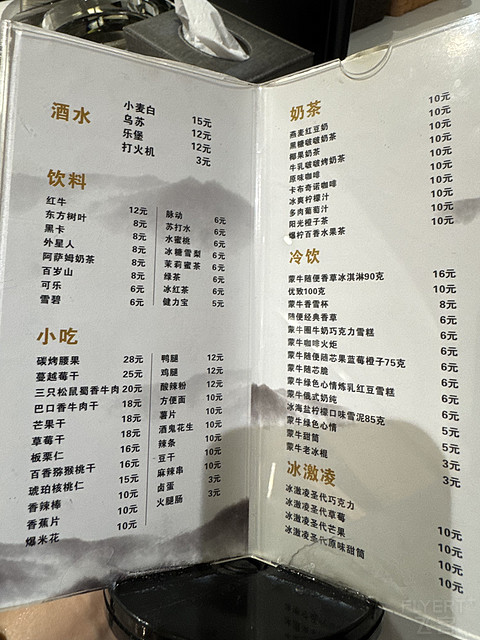 酒水
小麦白 15元
乌苏 12元
乐堡 12元
打火机 3元
饮料
红牛 12元
东方树叶 8元
黑卡 8元
外星人 8元
阿萨姆奶茶 8元
百岁山 8元
可乐 6元
雪碧 6元
脉动 6元
苏打水 6元
水蜜桃 6元
冰糖雪梨 6元
茉莉蜜茶 6元
绿茶 6元
冰红茶 6元
健力宝 5元
小吃
碳烤腰果 28元
蔓越莓干 25元
三只松鼠蜀香牛肉 20元
巴口香牛肉干 18元
芒果干 18元
草莓干 18元
板栗仁 16元
百香猕猴桃干 16元
琥珀核桃仁 15元
香辣棒 10元
香蕉片 10元
爆米花 10元
鸭腿 12元
鸡腿 12元
酸辣粉 12元
方便面 10元
薯片 10元
酒鬼花生 10元
辣条 10元
豆干 10元
麻辣串 10元
卤蛋 3元
火腿肠 3元
奶茶
燕麦红豆奶 10元
黑糖啵啵奶茶 10元
椰果奶茶 10元
牛乳啵啵烤奶茶 10元
原味咖啡 10元
卡布奇诺咖啡 10元
冰爽柠檬汁 10元
多肉葡萄汁 10元
阳光橙子茶 10元
爆柠百香水果茶 10元
冷饮
蒙牛随便香草冰淇淋90克 16元
优致100克 10元
蒙牛香雪杯 8元
随便经典香草 6元
蒙牛圈牛奶巧克力雪糕 6元
蒙牛咖啡火炬 6元
蒙牛随便随芯果蓝莓橙子75克 6元
蒙牛随芯脆 6元
蒙牛绿色心情炼乳红豆雪糕 6元
蒙牛俄式奶纯 6元
冰海盐柠檬口味雪泥85克 5元
蒙牛绿色心情 5元
蒙牛甜筒 3元
蒙牛老冰棍 3元
冰激凌
冰激凌圣代巧克力 10元
冰激凌圣代草莓 10元
冰激凌圣代芒果 10元
冰激凌圣代原味甜筒 10元
FLYERT